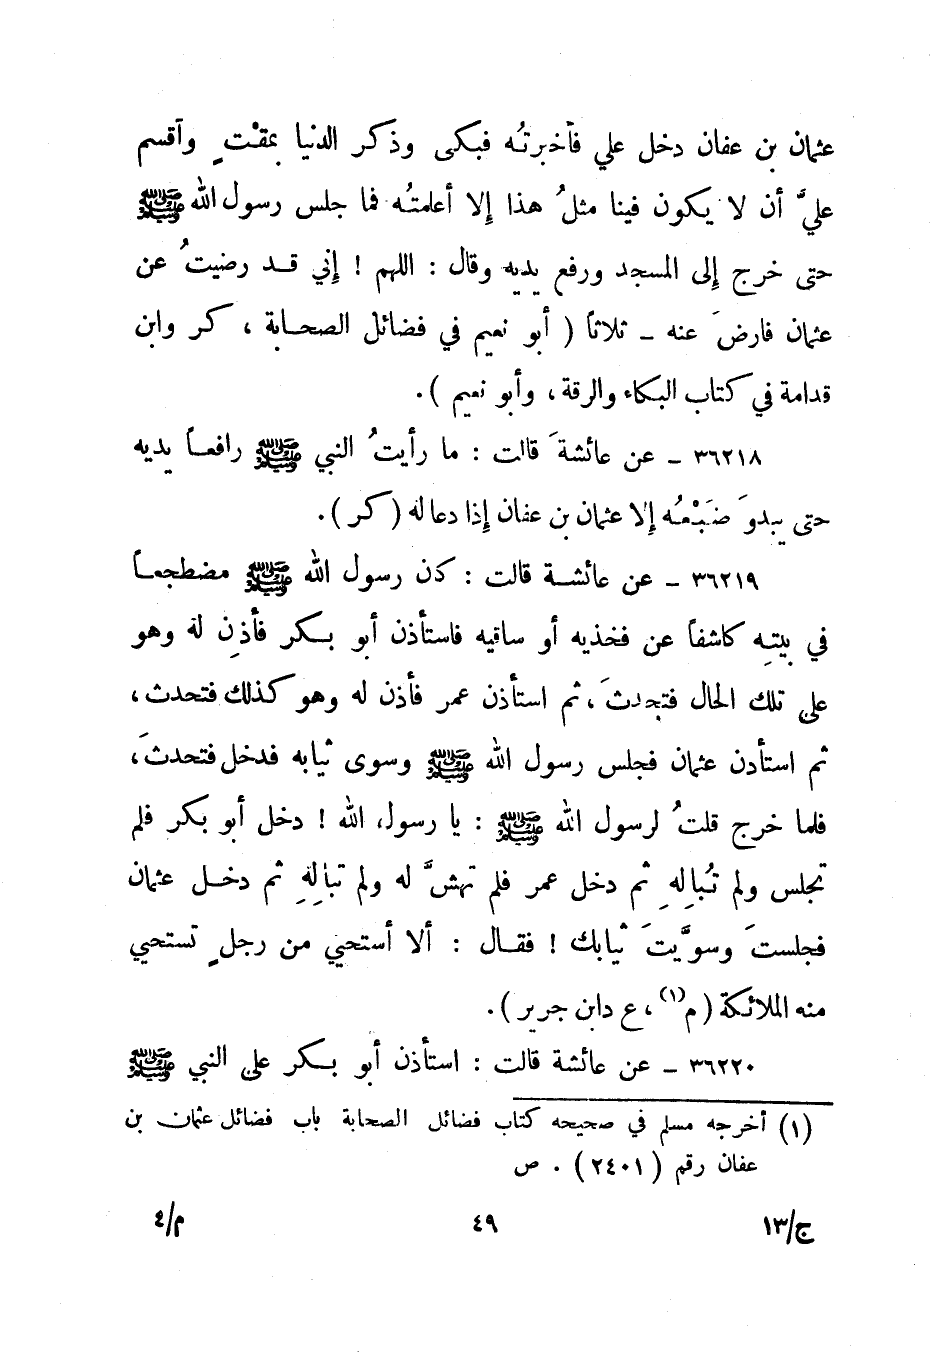 عثمان بن عفان دخل علي فأخبرتُه فبكى وذكر الدنيا بمقْتٍ وأقسم
عليَّ أن لا يكون فينا مثلُ هذا إلا أعلمتُه فما جلس رسول الله ﷺ
حتى خرج إلى المسجد ورفع يديه وقال : اللهم ! إني قد رضيتُ عن
عثمان فارضَ عنه ــ ثلاثاً ( أبو نعيم في فضائل الصحابة ، كر وابن
قدامة في كتاب البكاء والرقة ، وأبو نعيم ) .
٣٦٢١٨ ــ عن عائشةَ قالت : ما رأيتُ النبي ﷺ رافعاً يديه
حتى يبدوَ ضَبْعُه إلا عثمان بن عفان إذا دعا له ( كر ) .
٣٦٢١٩ ــ عن عائشة قالت : كان رسول الله ﷺ مضطجعاً
في بيتِه كاشفاً عن فخذيه أو ساقيه فاستأذن أبو بكر فأذِن له وهو
على تلك الحال فتحدثَ ، ثم استأذن عمر فأذن له وهو كذلك فتحدث ،
ثم استأذن عثمان فجلس رسول الله ﷺ وسوى ثيابه فدخل فتحدثَ ،
فلما خرج قلتُ لرسول الله ﷺ : يا رسول الله ! دخل أبو بكر فلم
تجلس ولم تُبالِه ثم دخل عمر فلم تهشَّ له ولم تبالِهِ ثم دخل عثمان
فجلستَ وسوَّيتَ ثيابك ! فقال : ألا أستحيي من رجلٍ تستحيي
منه الملائكة ( م(١) ، ع وابن جرير ) .
٣٦٢٢٠ ــ عن عائشة قالت : استأذن أبو بكر على النبي ﷺ
(١) أخرجه مسلم في صحيحه كتاب فضائل الصحابة باب فضائل عثمان بن
عفان رقم ( ٢٤٠١ ) . ص
ج/١٣ ٤٩ م/٤